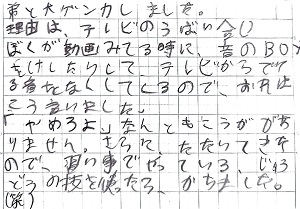 弟と大ゲンカしました。
理由は、テレビのうばい合い
ぼくが動画みてる時に、音のBOX
をけしたりして、テレビからでて
る音をなくしてくるので、おれは
こう言いました。
「やめろよ」なんともこうががあ
りません。さらに、たたいてきた
ので、習い事でやっている、じゅう
どうの技を使ったら、がちました。
(笑)